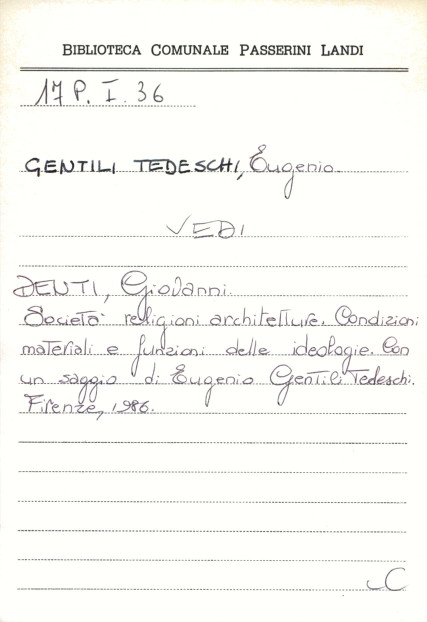 BIBLIOTECA COMUNALE PASSERINI LANDI
17 P. I. 36
GENTILI TEDESCHI, Eugenio.
VEDI
DENTI, Giovanni.
Società religioni architetture. Condizioni
materiali e funzioni delle ideologie. Con
un saggio di Eugenio Gentili Tedeschi.
Firenze, 1986.
C